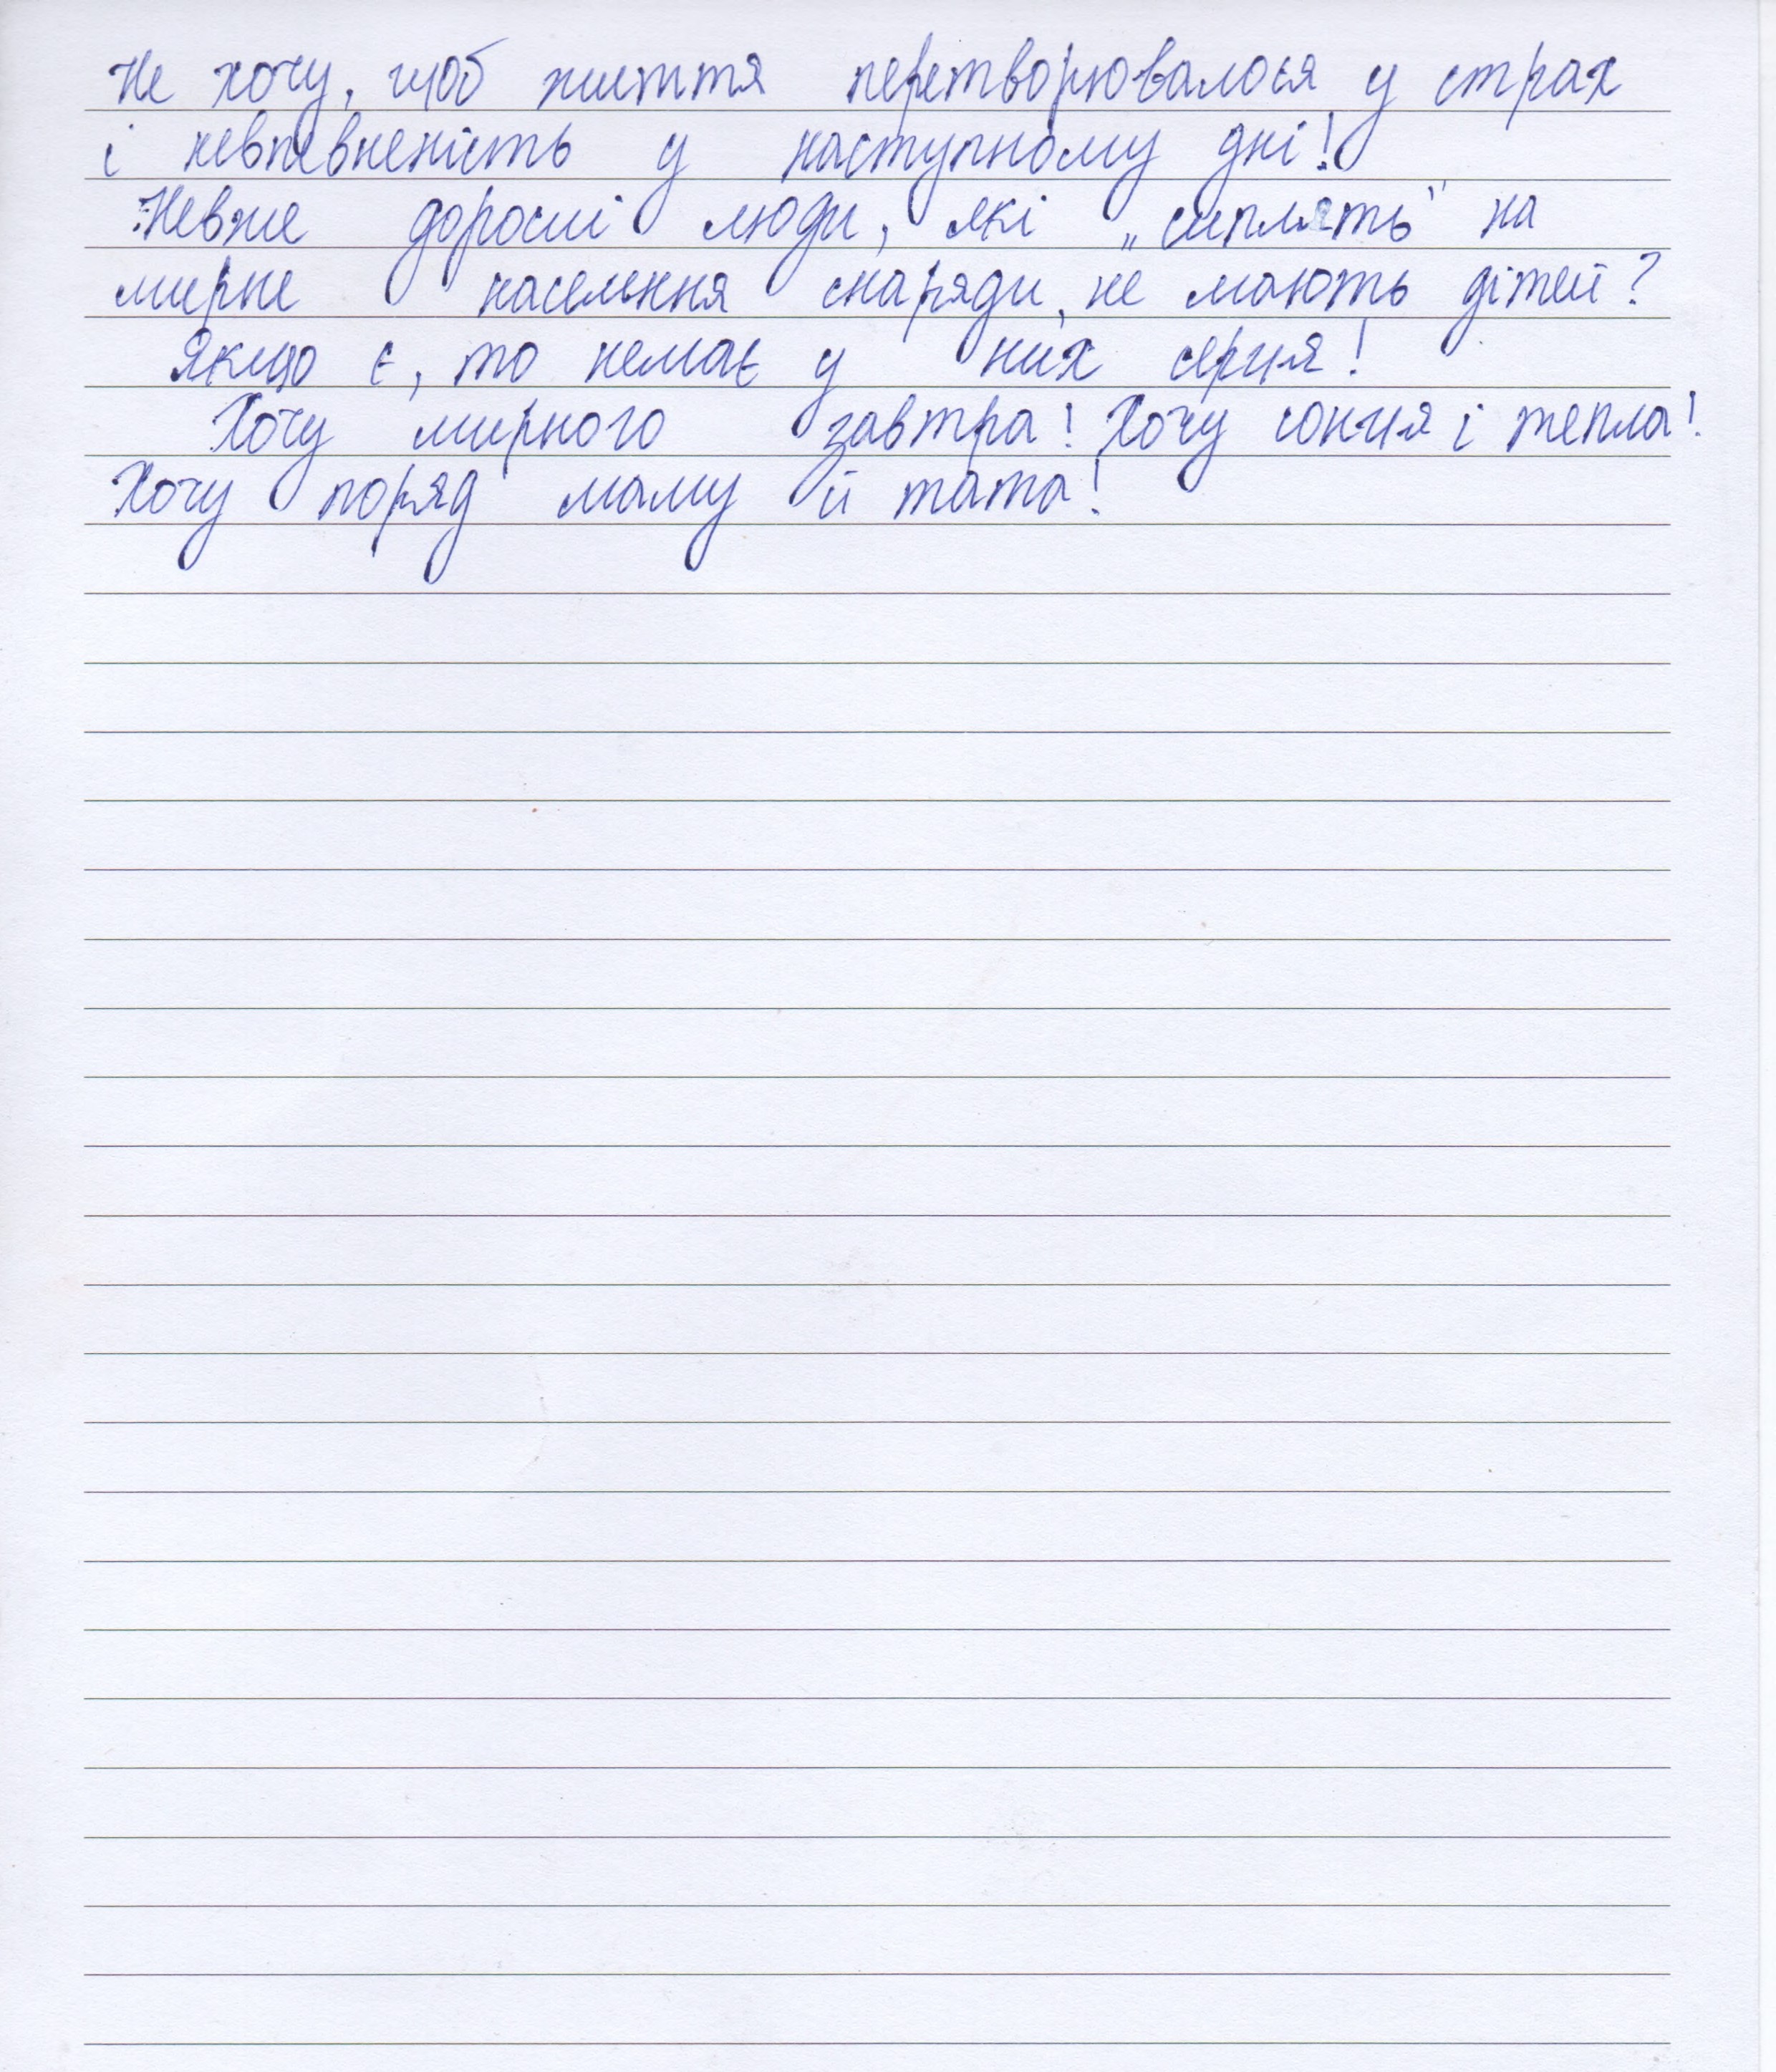 Не хочу, щоб життя перетворювалося у страх
і невпевненість у наступному дні!
Невже дорослі люди, які „сиплять" на
мирне населення снаряди, не мають дітей?
Якщо є, то немає у них серця!
Хочу мирного завтра! Хочу сонця і тепла!
Хочу поряд маму й тата!